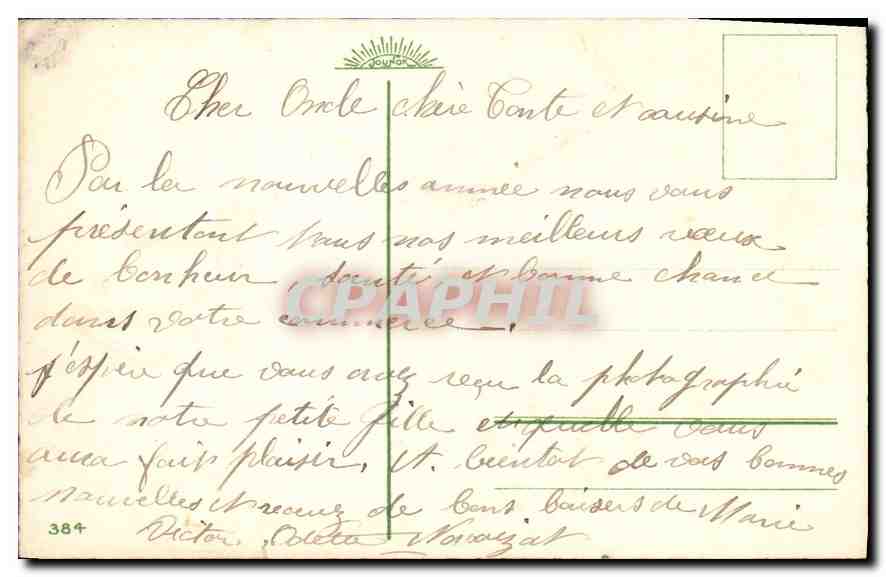 JOUNOK
Cher Oncle chère Tante et cousine
Par la nouvelles année nous vous
présentont tous nos meilleurs vœux
de bonheur, santé, et bonne chance
dans votre commerce.
CPAPHIL
j'espère que vous avez reçu la photographie
de notre petite fille et quelle vous
aura fait plaisir, A bientot de vos bonnes
nouvelles et recevez de bons baisers de Marie
Victor, Odette
384